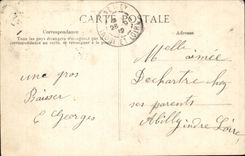 CARTE POSTALE
Correspondance
Tous les pays étrangers n'acceptent pas la
correspondance au recto
une gros
Baiser
G Georges
Melle aimée
Dechartre chez
ses parents
Abilly indre Loire